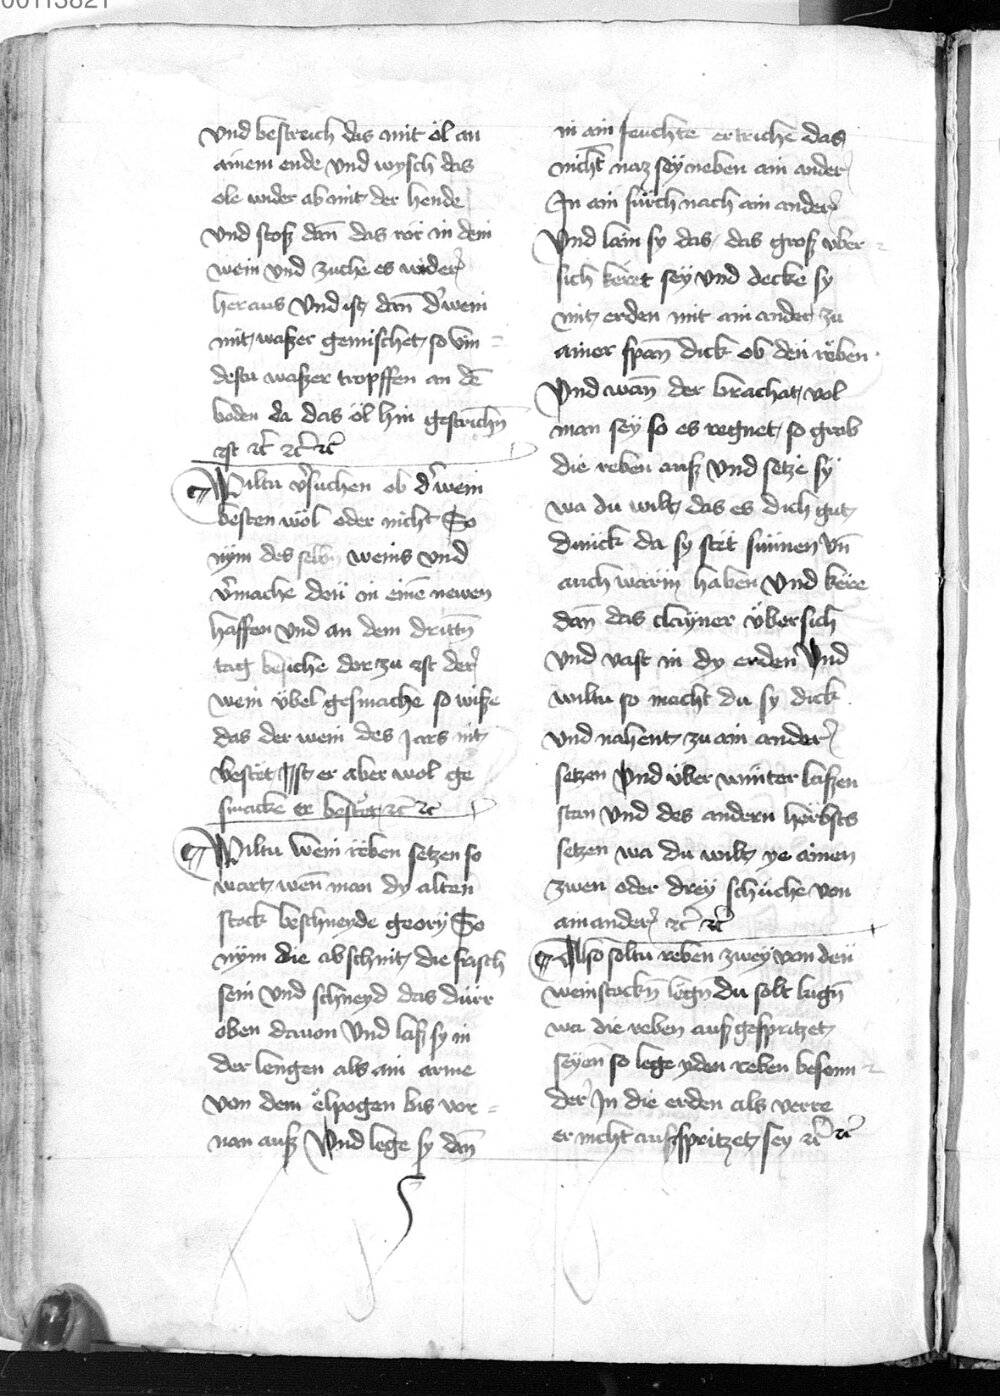 00113821
vnd bestreich das mit öl an
ainem ende vnd wysch das
ole wider ab mit der hende
vnd stosz dan̄ das rör in den
wein vnd zuche es wider
heraus vnd ist dan̄ d' wein
mit waszer gemischet so vin=
destu waszer tropffen an dē
boden da das öl hin gestrichn̄
ist ꝛc̄ ꝛc̄ ꝛc̄
Wiltu v'suchen ob d' wein
besten wöl oder nicht So
nym des selbn weins vnd
v'mache den in einē newen
haffen vnd an dem drittn̄
tag besiche dor zu ist der
wein übel gesmache so wisze
das der wein des Jars nit
bestet Ist er aber wol ge
smacke er bestet ꝛc̄ ꝛc̄
Wiltu wein reben setzen so
wart wen̄ man dy alten
stock beschneyde geory So
nym die abschnit die frisch
sein vnd schneyd das dürr
oben dauon vnd lasz sy in
der lengen als ain arme
von dem elpogen bis vor=
nan ausz Vnd lege sy dan̄
in ain feuchte ertriche das
nicht naz sey neben ain ander
In ain fürch nach ain ander
Vnd lain sy das das grosz vber=
sich keret sey vnd decke sy
mit erden mit ain ander zu
ainer span̄ dick ob den reben
Vnd wan̄ der brachat vol
man sey so es regnet so grab
die reben ausz vnd setze sy
wa du wilt das es dich gut
dunck da sy stet sünnen vn̄
auch warm haben vnd kere
dan̄ das clayner übersich
vnd vast in dy erden vnd
wiltu so macht du sy dick
vnd nahent zu ain ander
setzen vnd über winter laszen
stan vnd des andern herbsts
setzen wa du wilt ye ainen
zwen oder drey schuche von
ain ander ꝛc̄ ꝛc̄
Also soltu reben zwey von den
weinstockn̄ legn̄ du solt lugn̄
wa die reben ausz gespritzet
seyen so lege yden reben besonn=
der In die erden als verre
er nicht auszspritzet sey ꝛc̄ ꝛc̄